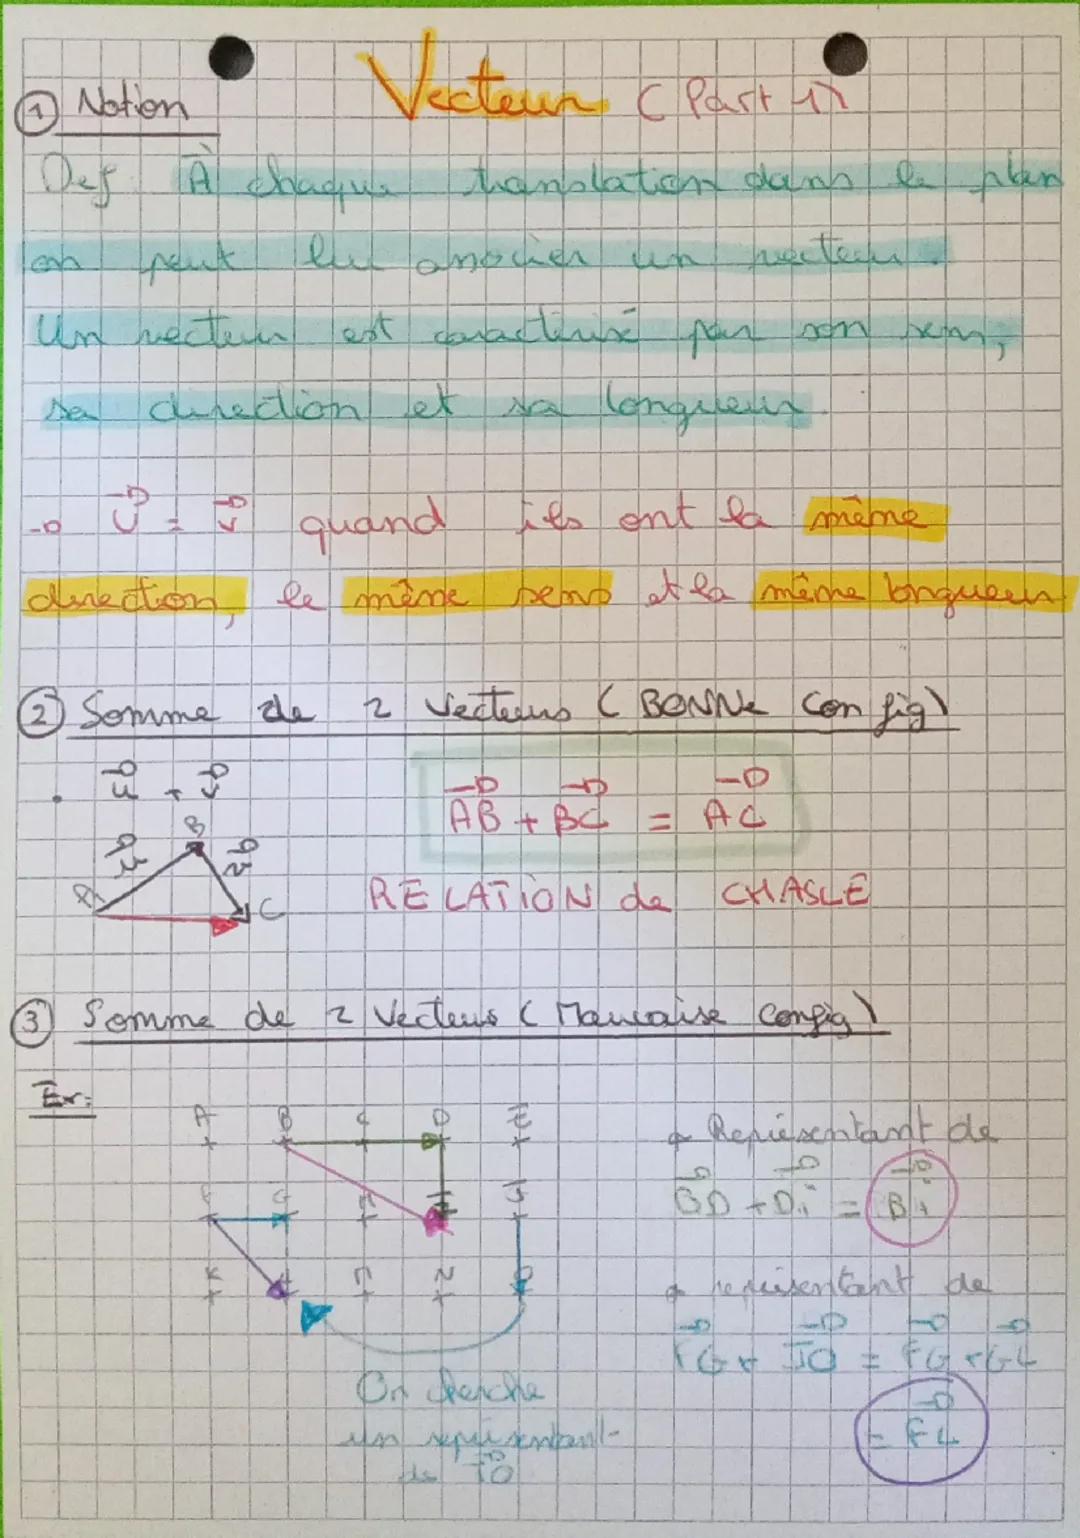 Vecteur (Part 1)
① Notion
Def À chaque translation dans le plan
on peut lui associer un vecteur.
Un vecteur est caractérisé par son sens,
sa direction et sa longueur.
→ u⃗ = v⃗ quand ils ont la même
direction, le même sens et la même longueur
② Somme de 2 Vecteurs (BONNe Config)
• u⃗ + v⃗
A B C u⃗ v⃗
AB⃗ + BC⃗ = AC⃗
RELATION de CHASLE
③ Somme de 2 Vecteurs (Mauvaise Config)
Ex:
A B C D E
F G H I J
K L M N O
Représentant de
BD⃗ + Di⃗ = Bi⃗
représentant de
FG⃗ + JO⃗ = FG⃗ + GL⃗
= FL⃗
On cherche
un représentant
de JO⃗